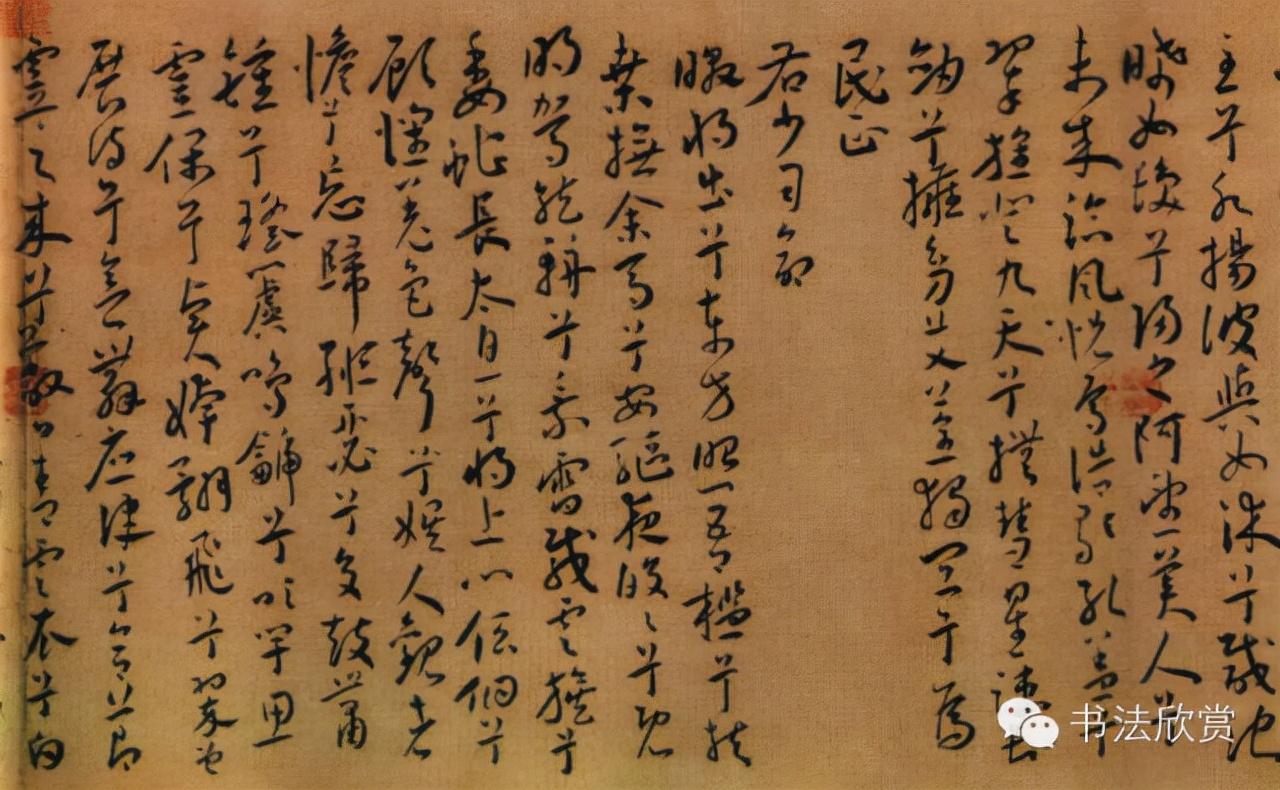 至兮水揚波與女沐兮咸池
晞女髮兮陽之阿望美人兮
未来臨風怳兮浩歌孔蓋兮
翠旍登九天兮撫彗星竦長
劍兮擁幼艾荃獨宜兮為
民正
右少司命
暾將出兮東方照吾檻兮扶
桑撫余馬兮安驅夜皎々兮既
明駕龍輈兮乘雷載雲旗兮
委蛇長太息兮將上心低佪兮
顧懷羌色聲兮娛人觀者
憺兮忘歸緪瑟兮交鼓簫
鍾兮瑤簴鳴鷈兮吹竽思
靈保兮賢姱翾飛兮翠曾
展詩兮會舞應律兮合節
靈之來兮蔽日青雲衣兮白
书法欣赏